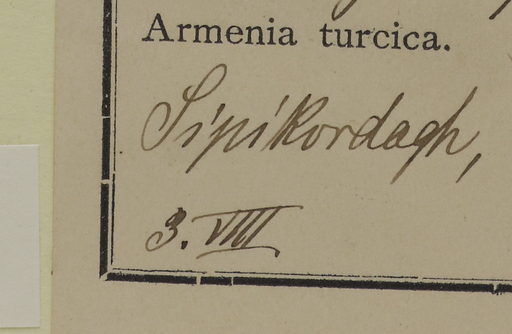 Armenia turcica.
Sipikordagh,
3. VIII